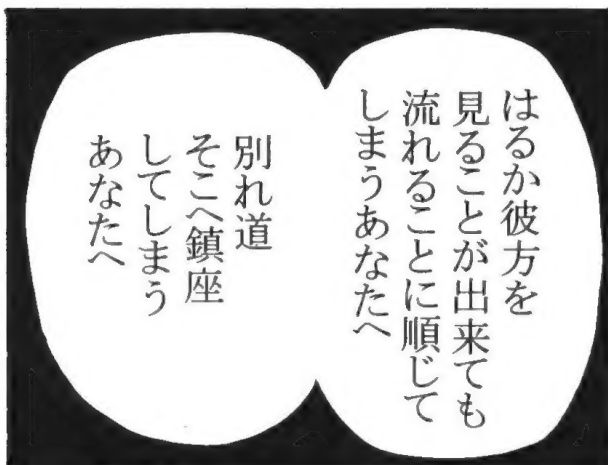 はるか彼方を
見ることが出来ても
流れることに順じて
しまうあなたへ
別れ道
そこへ鎮座
してしまう
あなたへ